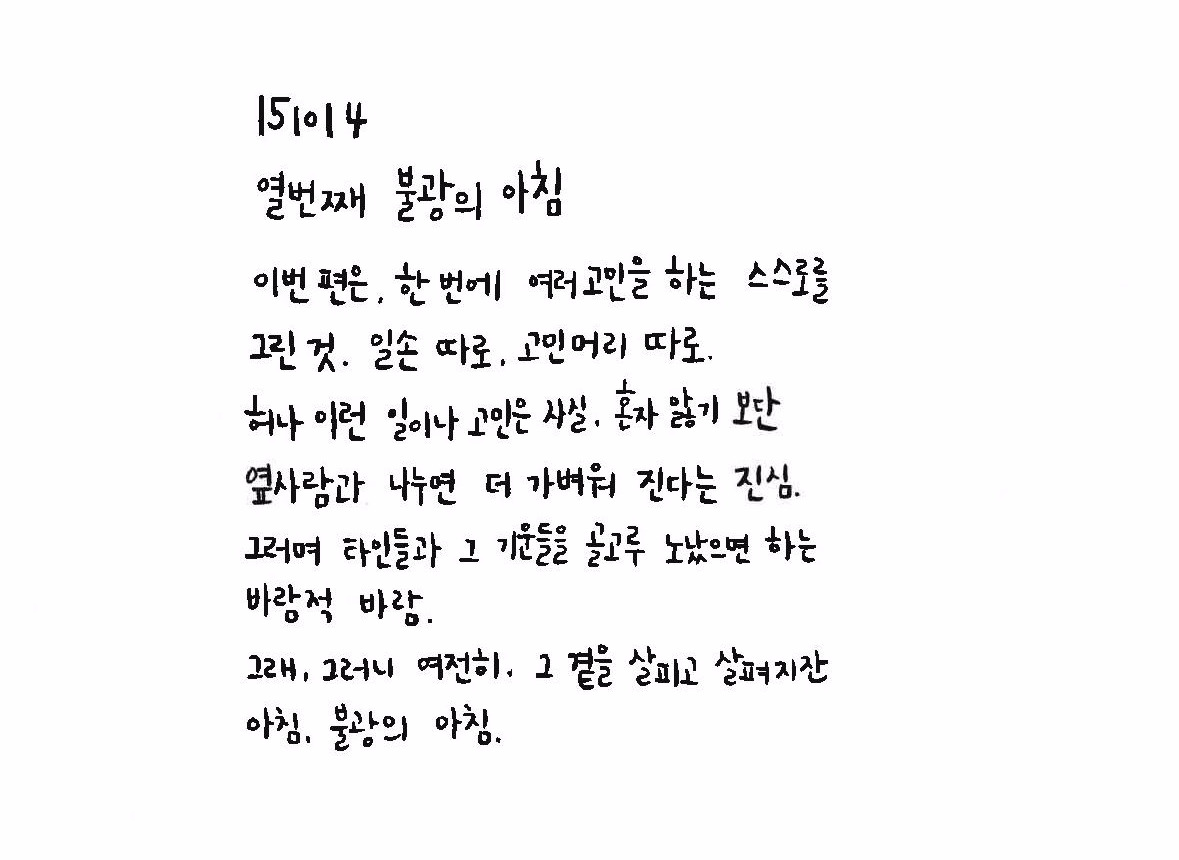 151014
열번째 불광의 아침
이번 편은, 한 번에 여러고민을 하는 스스로를
그린 것. 일손 따로, 고민머리 따로.
허나 이런 일이나 고민은 사실, 혼자 앓기 보단
옆사람과 나누면 더 가벼워 진다는 진심.
그러며 타인들과 그 기운들을 골고루 노났으면 하는
바람적 바람.
그래, 그러니 여전히, 그 곁을 살피고 살펴지잔
아침, 불광의 아침.